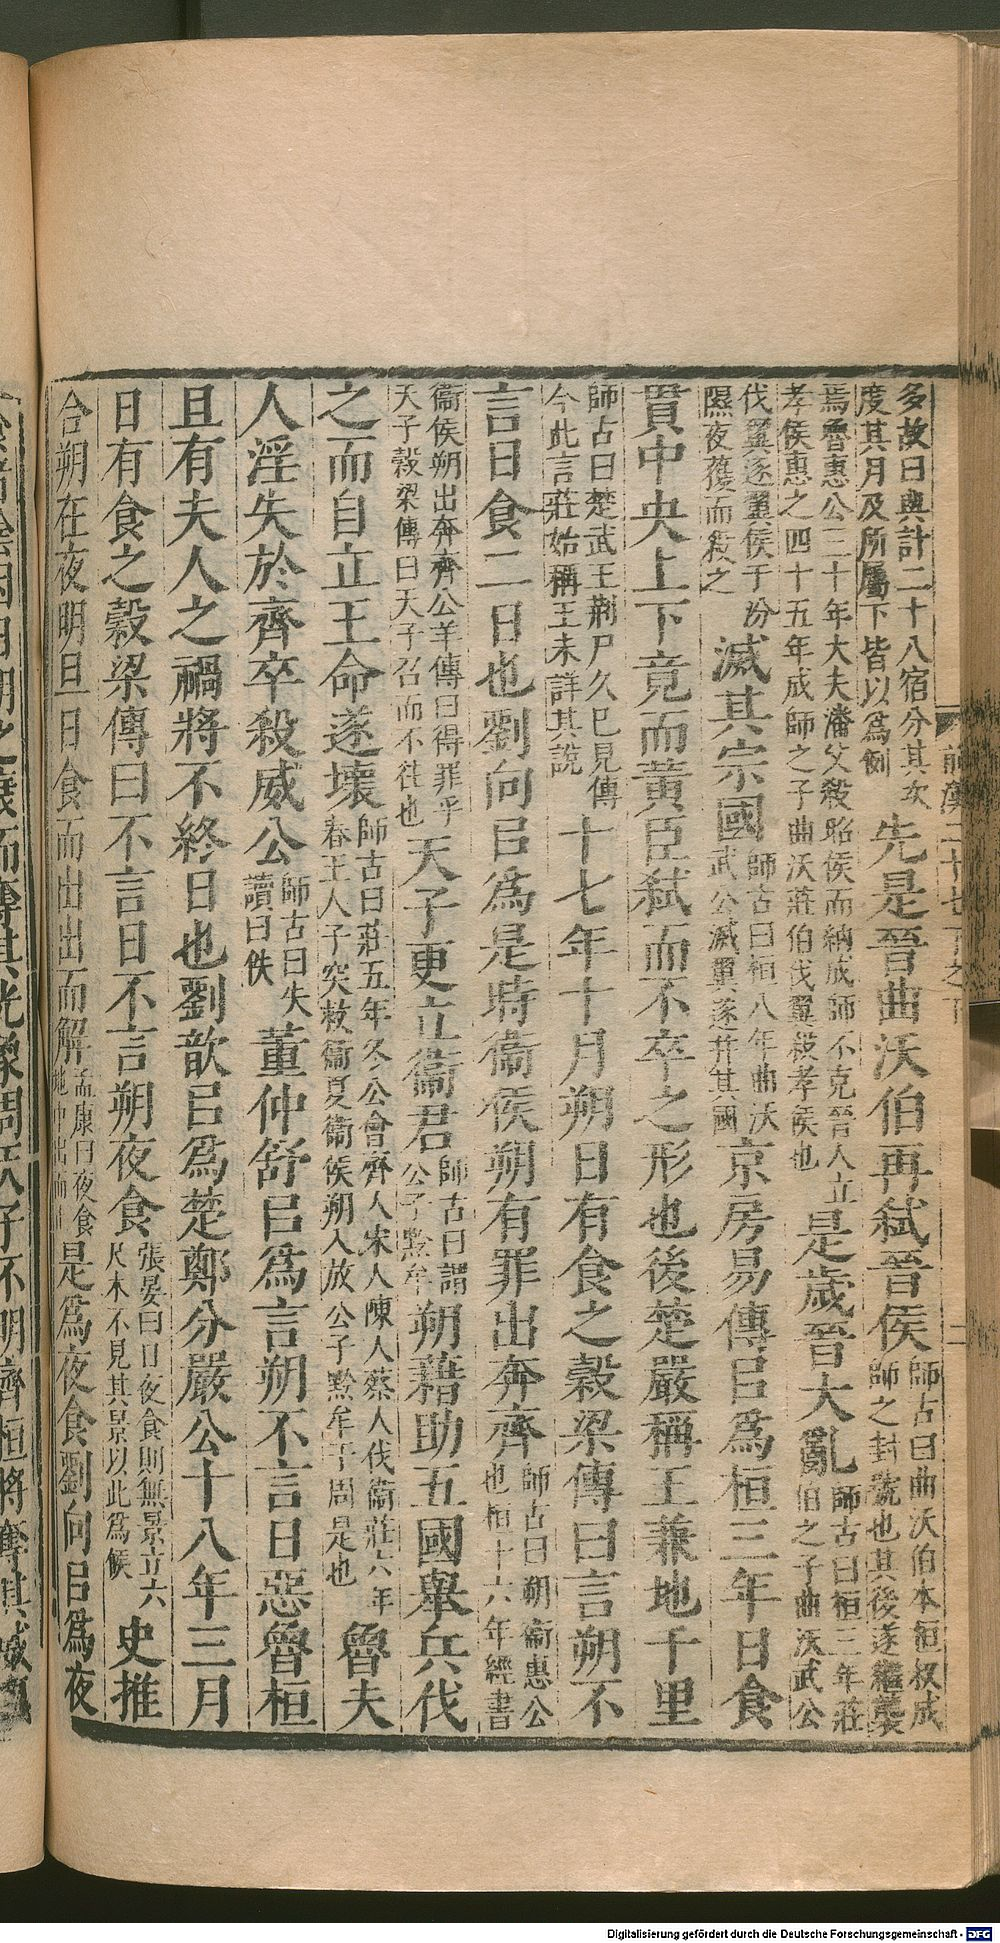 多故日與計二十八宿分其次
度其月及所屬下皆以爲例
先是晉曲沃伯再弒晉侯
師古曰曲沃伯本桓叔成
師之封號也其後遂繼襲
焉魯惠公三十年大夫潘父殺昭侯而納成師不克晉人立
孝侯惠之四十五年成師之子曲沃莊伯伐翼殺孝侯也
是歲晉大亂
師古曰桓三年莊
伯之子曲沃武公
伐翼逐翼侯于汾
隰夜獲而殺之
滅其宗國
師古曰桓八年曲沃
武公滅翼遂并其國
京房易傳㠯爲桓三年日食
貫中央上下竟而黃臣弒而不卒之形也後楚嚴稱王兼地千里
師古曰楚武王荆尸久已見傳
今此言莊始稱王未詳其說
十七年十月朔日有食之穀梁傳曰言朔不
言日食二日也劉向㠯爲是時衞侯朔有罪出奔齊
師古曰朔衞惠公
也桓十六年經書
衞侯朔出奔齊公羊傳曰得罪乎
天子穀梁傳曰天子召而不往也
天子更立衞君
師古曰謂
公子黔牟
朔藉助五國舉兵伐
之而自立王命遂壞
師古曰莊五年冬公會齊人宋人陳人蔡人伐衞莊六年
春王人子突救衞夏衞侯朔入放公子黔牟于周是也
魯夫
人淫失於齊卒殺威公
師古曰失
讀曰佚
董仲舒㠯爲言朔不言日惡魯桓
且有夫人之禍將不終日也劉歆㠯爲楚鄭分嚴公十八年三月
日有食之穀梁傳曰不言日不言朔夜食
張晏曰日夜食則無景立六
尺木不見其景以此爲候
史推
合朔在夜明旦日食而出出而解
孟康曰夜食
地中出而止
是爲夜食劉向㠯爲夜
前漢二十七下之下
二
Digitalisierung gefördert durch die Deutsche Forschungsgemeinschaft - DFG